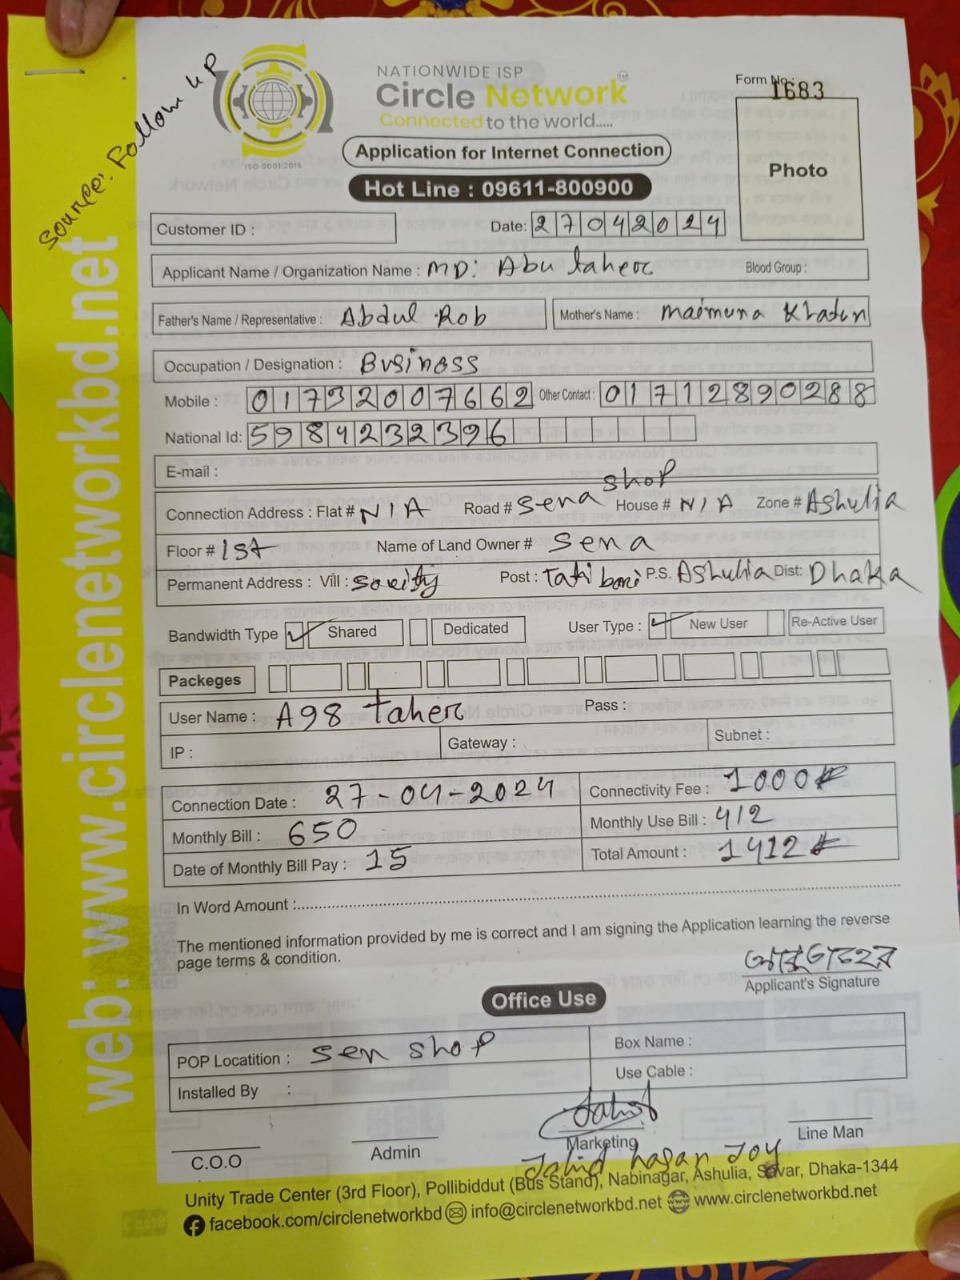 Source: Follow up
NATIONWIDE ISP
Circle Network
Connected to the world.....
ISO 9001:2015
Application for Internet Connection
Hot Line : 09611-800900
Form No.: 1683
Photo
Customer ID :
Date: 27042024
Applicant Name / Organization Name : MD: Abu taher Blood Group :
Father's Name / Representative : Abdul Rob Mother's Name : Maimuna Khatun
Occupation / Designation : Business
Mobile : 01732007662 Other Contact : 01712890288
National Id: 5984232396
E-mail :
Connection Address : Flat # N/A Road # Sena shop House # N/A Zone # Ashulia
Floor # 1st Name of Land Owner # Sena
Permanent Address : Vill : Post : P.S. Ashulia Dist: Dhaka
Bandwidth Type ✓ Shared Dedicated User Type : ✓ New User Re-Active User
Packeges
User Name : A98 taher Pass :
IP : Gateway : Subnet :
Connection Date : 27-04-2024 Connectivity Fee : 1000
Monthly Bill : 650 Monthly Use Bill : 412
Date of Monthly Bill Pay : 15 Total Amount : 1412
In Word Amount :
The mentioned information provided by me is correct and I am signing the Application learning the reverse
page terms & condition.
Applicant's Signature
Office Use
POP Locatition : Sen shop Box Name :
Installed By : Use Cable :
C.O.O Admin Marketing Line Man
Unity Trade Center (3rd Floor), Pollibiddut (Bus Stand), Nabinagar, Ashulia, Savar, Dhaka-1344
facebook.com/circlenetworkbd info@circlenetworkbd.net www.circlenetworkbd.net
web: www.circlenetworkbd.net